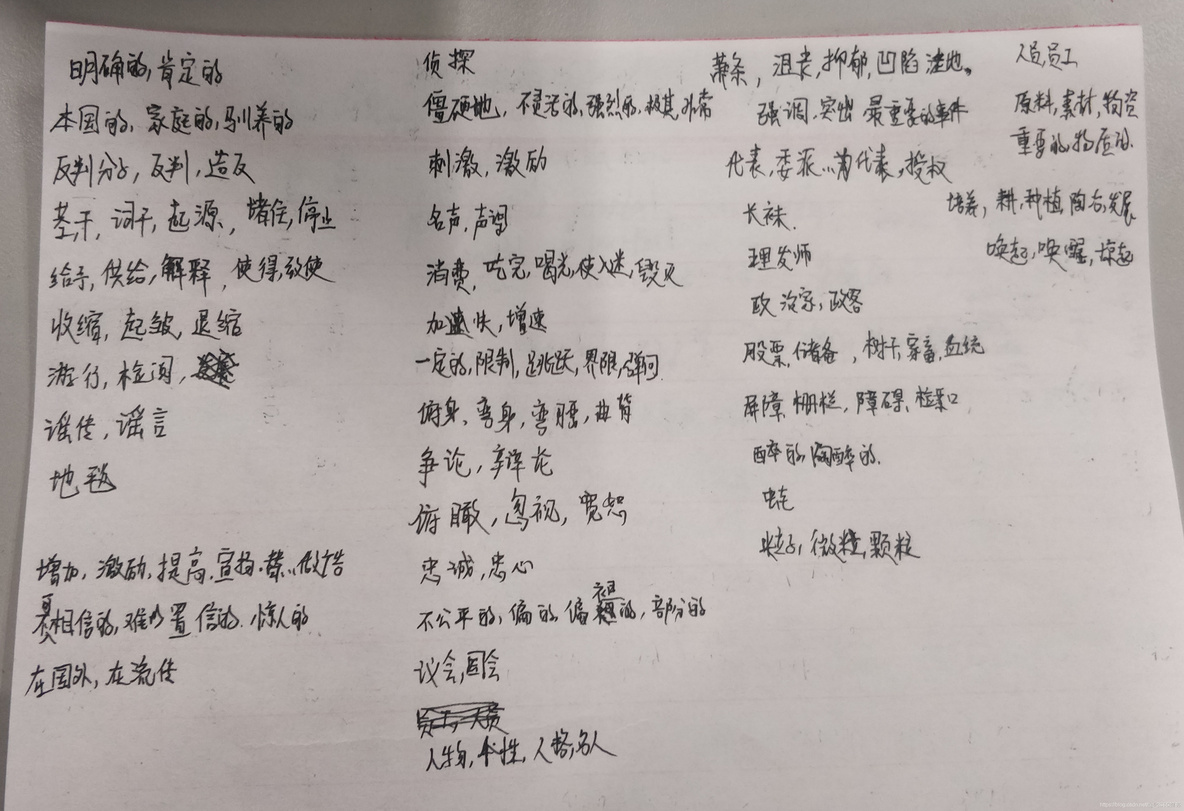 明确的,肯定的
本国的,家庭的,驯养的
反判分子,反判,造反
茎干,词干,起源,堵住,停止
给予,供给,解释,使得,致使
收缩,起皱,退缩
游行,检阅,
谣传,谣言
地毯
增加,激励,提高,宣扬,替..做广告
不可相信的,难以置信的.惊人的
在国外,在流传
侦探
僵硬地,不灵活的,强烈的,极其,非常
刺激,激励
名声,声望
消费,吃完,喝光,使入迷,毁灭
加速快,增速
一定的,限制,跳跃,界限,弹回
俯身,弯身,弯腰,曲背
争论,辩论
俯瞰,忽视,宽恕
忠诚,忠心
不公平的,偏的,偏袒的,部分的
议会,国会
人物,个性,人格,名人
萧条,沮丧,抑郁,凹陷洼地。
强调,突出 最重要的事件
代表,委派..为代表,授权
长袜.
理发师
政治家,政客
股票,储备,树干,家畜,血统
屏障,栅栏,障碍,检票口
醉的,陶醉的.
粒子,微粒,颗粒
人员,员工
原料,素材,物资
重要的,物质的.
培养,耕,种植,陶冶,发展
唤起,唤醒,惊起